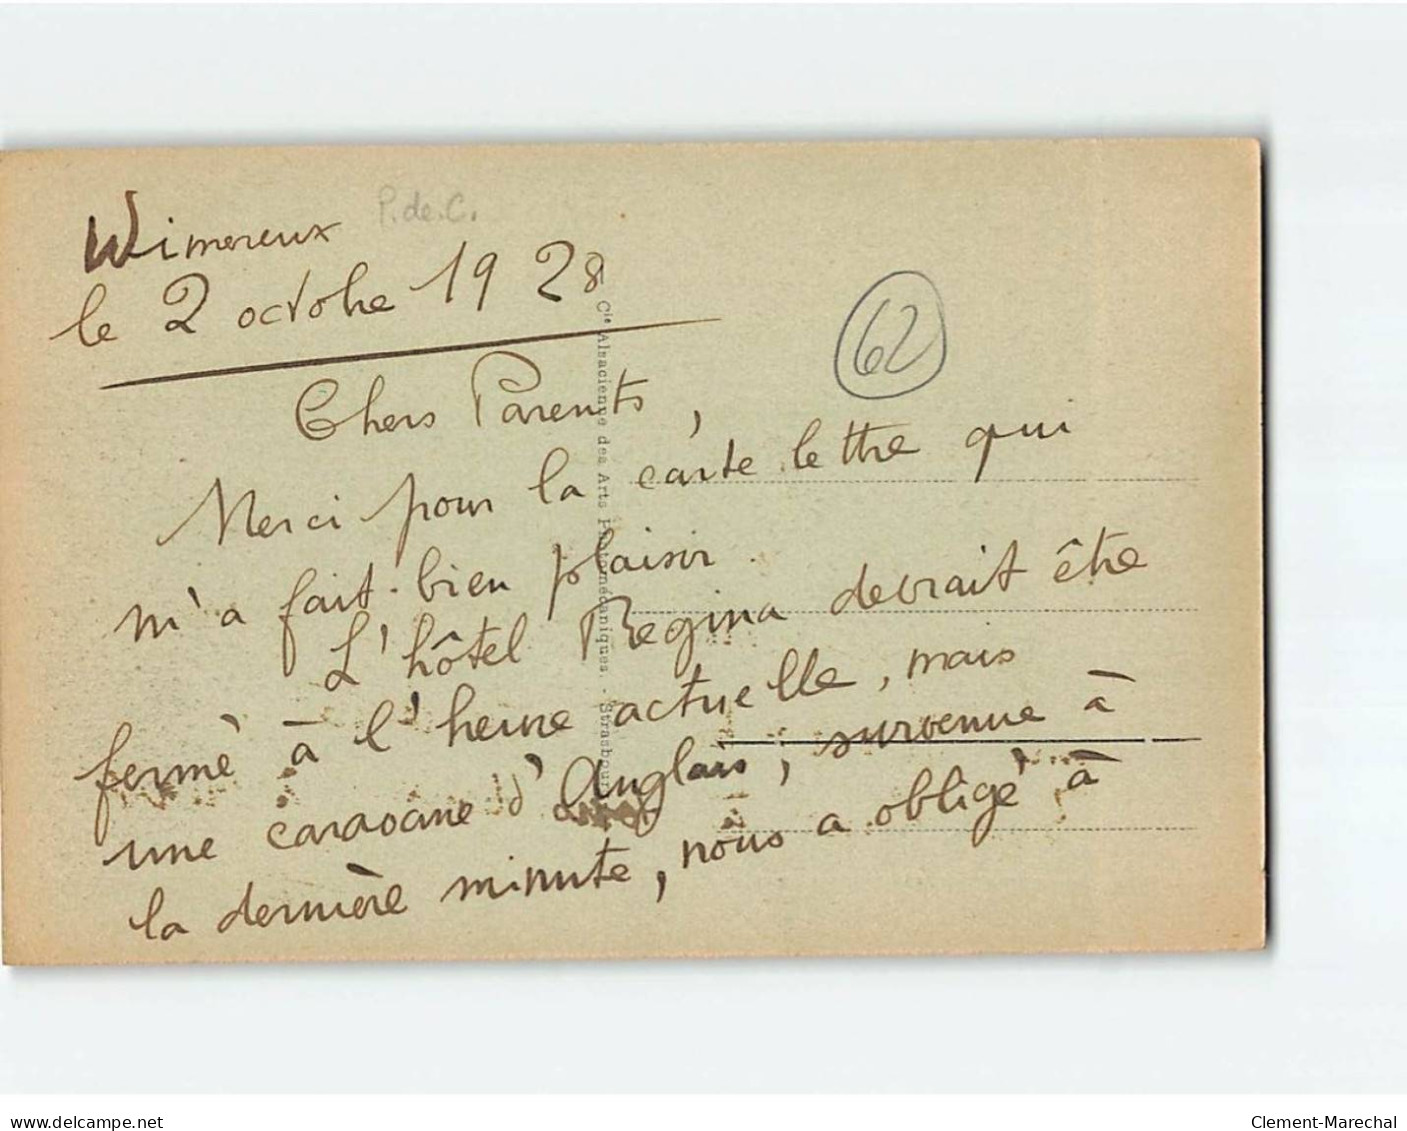 Wimereux
P. de C.
le 2 octobre 1928
62
Chers Parents,
Merci pour la carte lettre qui
m'a fait bien plaisir.
L'hôtel Regina devrait être
fermé à l'heure actuelle, mais
une caravane d'Anglais, survenue à
la dernière minute, nous a obligé à
Cie Alsacienne des Arts Photomécaniques. - Strasbourg
www.delcampe.net
Clement-Marechal